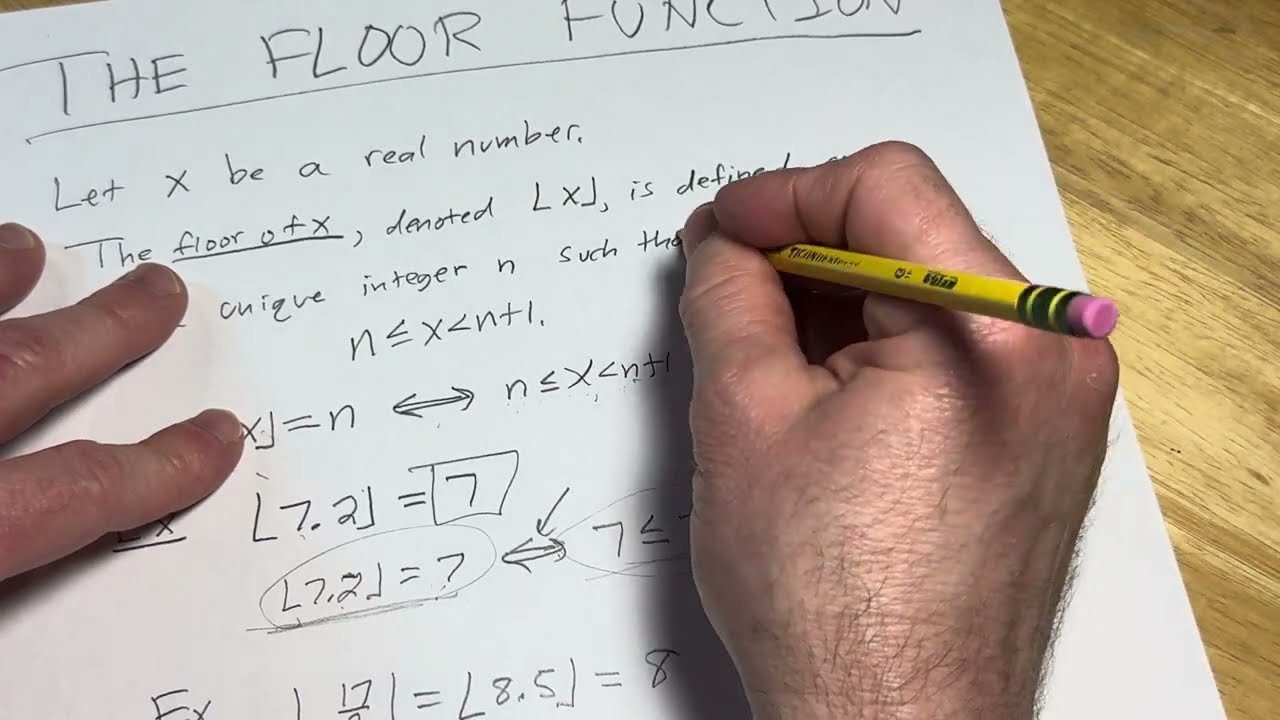 THE FLOOR FUNCTION
Let x be a real number.
The floor of x, denoted ⌊x⌋, is defined
unique integer n such
n ≤ x < n+1.
x⌋ = n ⟺ n ≤ x < n+1
Ex ⌊7.2⌋ = 7
⌊7.2⌋ = 7 ⟺ 7 ≤
Ex ⌊17/2⌋ = ⌊8.5⌋ = 8
TICONDEROGA